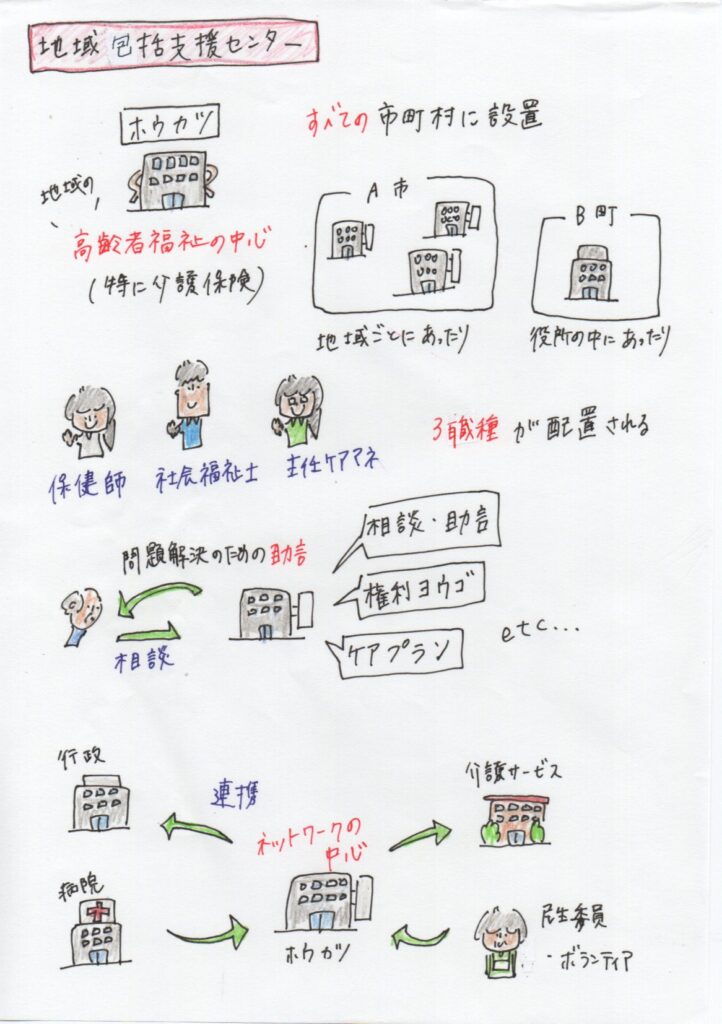 地域包括支援センター
ホウカツ
すべての市町村に設置
地域の
高齢者福祉の中心
(特に介護保険)
A市
B町
地域ごとにあったり
役所の中にあったり
3職種が配置される
保健師
社会福祉士
主任ケアマネ
問題解決のための助言
相談・助言
権利ヨウゴ
ケアプラン
etc...
相談
行政
連携
介護サービス
ネットワークの
中心
病院
ホウカツ
民生委員
・ボランティア